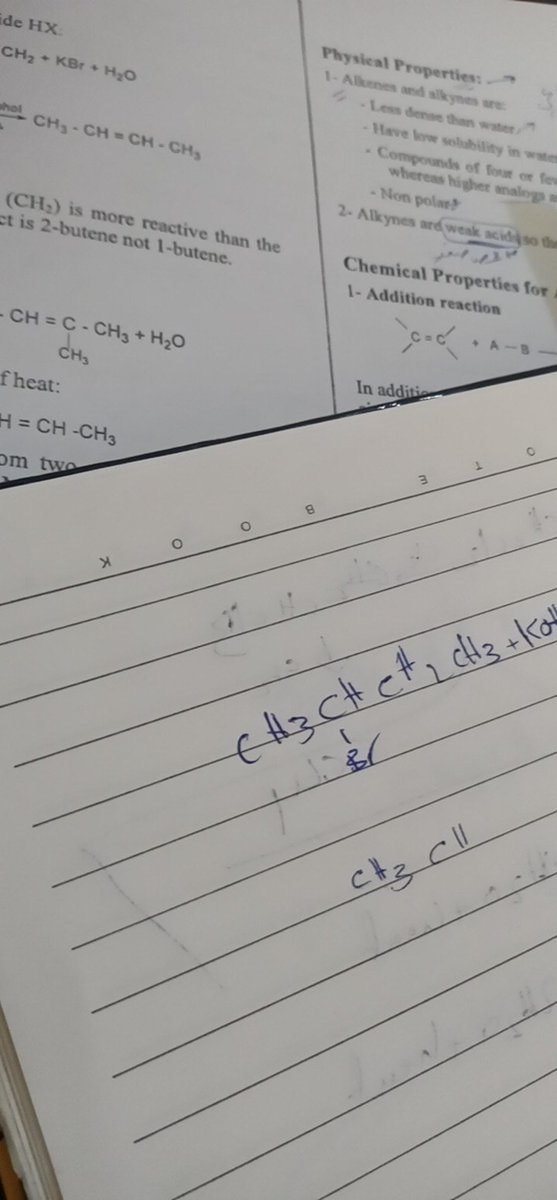 ide HX:
CH₂ + KBr + H₂O
ohol
CH₃ - CH = CH - CH₃
(CH₂) is more reactive than the
ct is 2-butene not 1-butene.
- CH = C - CH₃ + H₂O
CH₃
f heat:
H = CH -CH₃
om two
Physical Properties:
1- Alkenes and alkynes are:
- Less dense than water
- Have low solubility in water
- Compounds of four or few
whereas higher analogs a
- Non polar
2- Alkynes are weak acids so the
Chemical Properties for
1- Addition reaction
C=C + A — B —
In additi
K O O B E T O
CH3 CH CH2 CH3 + KOH
Br
CH3 CH